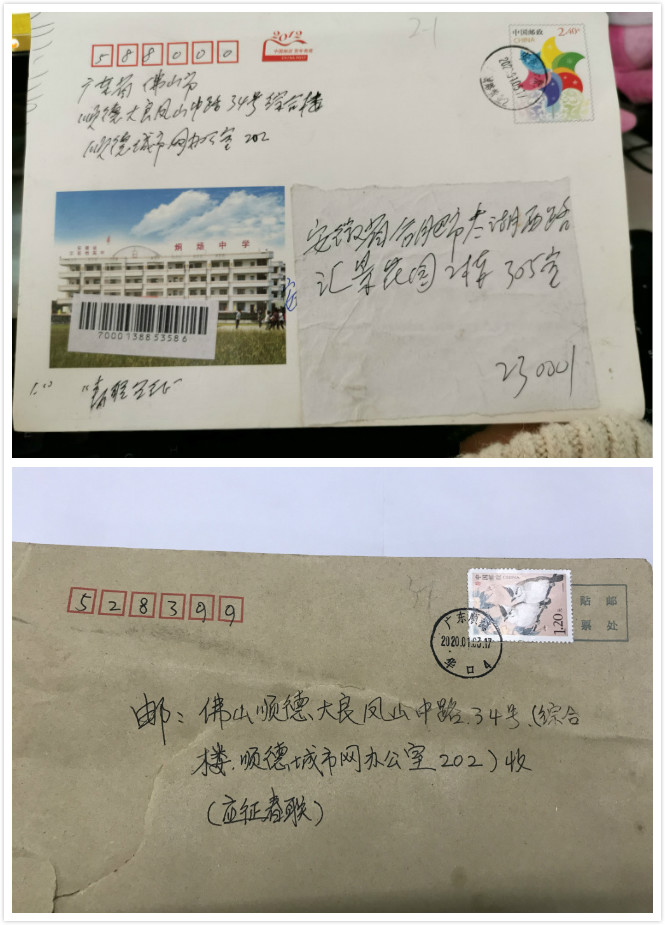 588000
2012
中国邮政
CHINA
2.40元
广东省 佛山市
顺德大良凤山中路34号综合楼
顺德城市网办公室 202
炯炀中学
7000138833586
安徽省合肥市太湖西路
汇景花园2栋305室
230001
528399
中国邮政
CHINA
1.20元
贴邮
票处
广东顺德
2020.01.03.17
A
邮：佛山顺德大良凤山中路34号（综合
楼.顺德城市网办公室202）收
（应征春联）